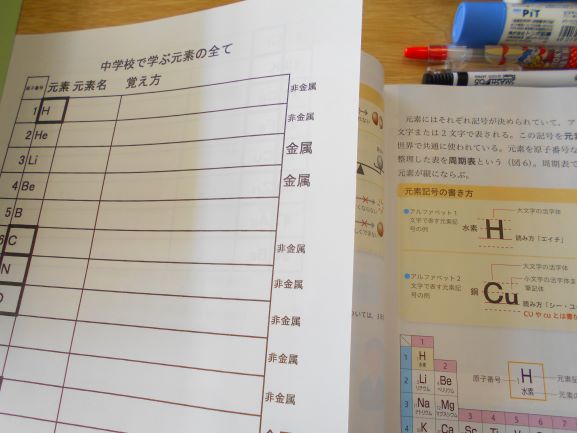 中学校で学ぶ元素の全て
原子番号 元素 元素名 覚え方
1 H 非金属
2 He 非金属
3 Li 金属
4 Be 金属
5 B
6 C 非金属
N 非金属
非金属
非金属
非金属
PiT
元素にはそれぞれ記号が決められていて、ア
文字または2文字で表される。この記号を元
世界で共通に使われている。元素を原子番号
整理した表を周期表という(図6)。周期表で
元素が縦にならぶ。
元素記号の書き方
●アルファベット1
文字で表す元素記
号の例
大文字の活字体
水素 H
読み方「エイチ」
●アルファベット2
文字で表す元素記
号の例
大文字の活字体
小文字の活字体ま
筆記体
銅 Cu
読み方「シー・ユ
CU や cu とは書
1
1 H 水素
2
2 Li リチウム Be ベリリウム
3 Na ナトリウム Mg マグネシウム
3 4 5 6
4 K Ca
原子番号 H 水素 元素記
元素の